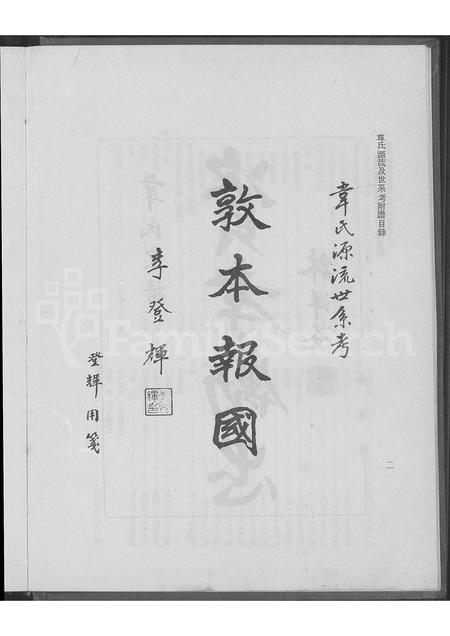 韋氏源流及世系考附譜目錄
二
韋氏源流世系考
敦本報國
李登輝
登輝用箋
FamilySearch